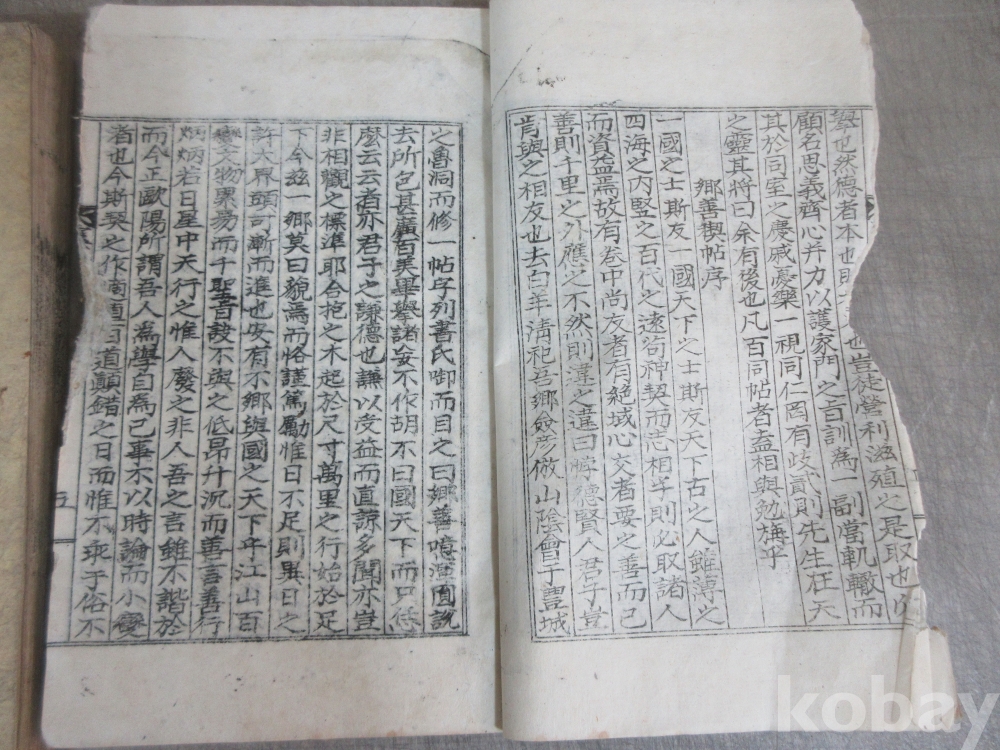 契也然德者本也
也豈徒營利滋殖之是取也
顧名思義齊心幷力以護家門之旨訓為一副當軌轍而
其於同室之慶戚憂樂一視同仁罔有歧貳則先生在天
之靈其將曰余有後也凡百同帖者盍相與勉旃乎
鄉善稧帖序
一國之士斯友一國天下之士斯友天下古之人雖薄之
四海之內竪之百代之遠苟神契而志相孚則必取諸人
而資益焉故有卷中尚友者有絕域心交者要之善而已
善則千里之外應之不然則違之違曰悖德賢人君子豈
肯與之相友也去白羊淸和吾鄉僉彦倣山陰會于豊城
之魯洞而修一帖字列書氏啣而目之曰鄉善噫
去所包甚廣百美畢擧諸妄不作胡不曰國天下而只
麽云云者亦君子之謙德也謙以受益而直諒多聞亦豈
非相觀之標準耶合抱之木起於尺寸萬里之行始於足
下今玆一鄉莫曰貌焉而恪謹篤勵惟日不足則異日之
許大界頭可漸而進也安有不鄉與國之天下乎江山百
變文物累易而千聖旨訣不與之低昂升沉而善言善行
炳炳若日星中天行之惟人廢之非人吾之言雖不諧於
而今正歐陽所謂吾人為學自為己事不以時論而小變
者也今斯契之作
道顚錯之日而惟不乖于俗不
五
kobay